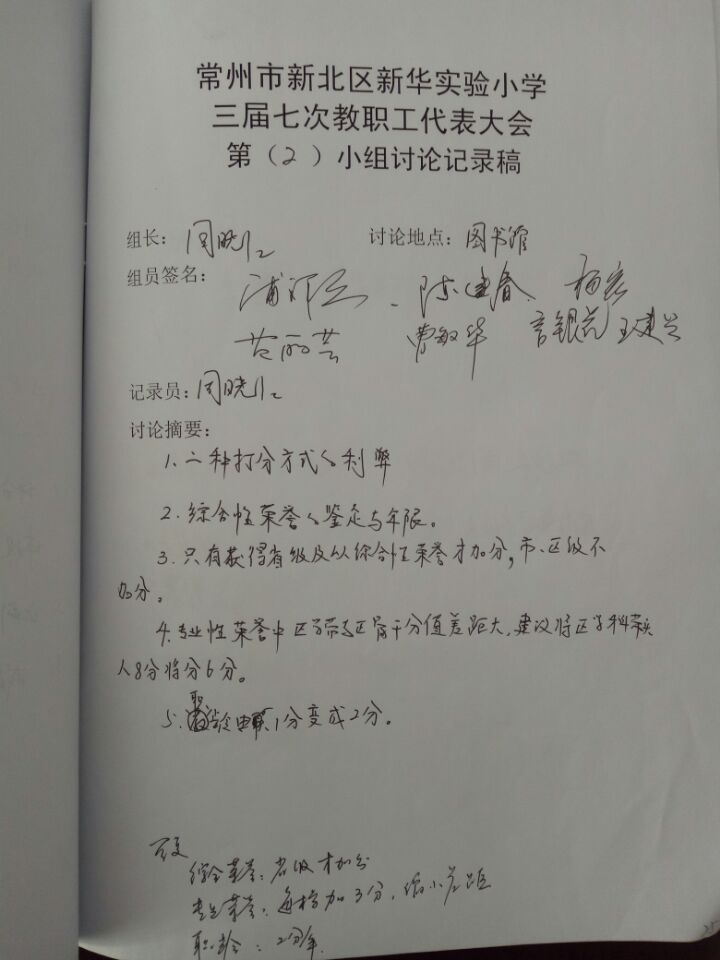 常州市新北区新华实验小学
三届七次教职工代表大会
第（2）小组讨论记录稿
组长：周晓仁 讨论地点：图书馆
组员签名：
陈建春 杨宏
黄丽芸 曹敏华 言银芳 王建兴
记录员：周晓仁
讨论摘要：
1.二种打分方式的利弊
2.综合性荣誉的鉴定与年限。
3.只有获得省级及以综合性荣誉才加分，市、区级不
加分。
4.专业性荣誉中区学带与区骨干分值差距大，建议将区学科带头
人8分将分6分。
5.龄由1分变成2分。
综合荣誉：省级才加分
专业荣誉：每档加3分，缩小差距
职龄：2分/年